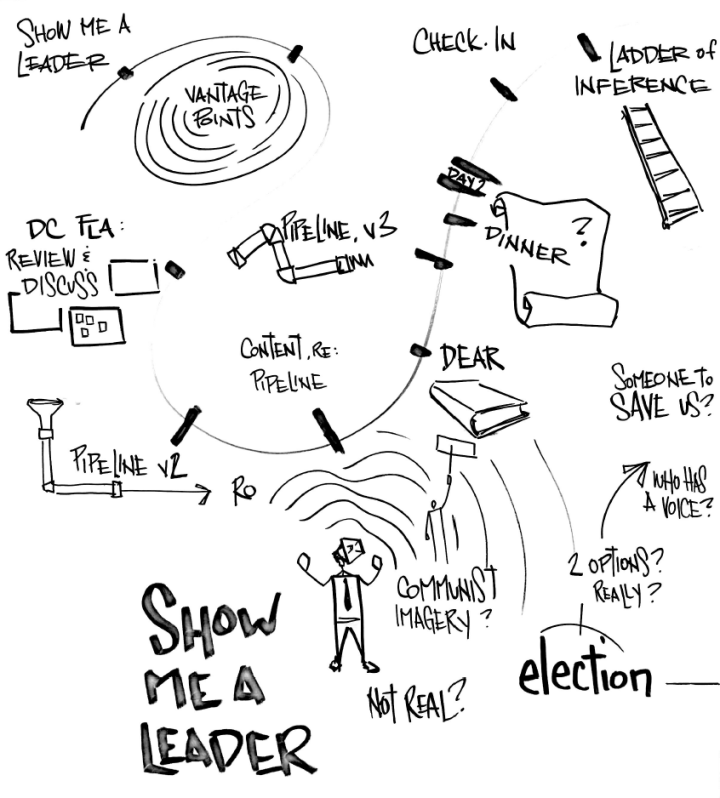 SHOW ME A
LEADER
VANTAGE
POINTS
CHECK-IN
LADDER of
INFERENCE
DAY 2
?
DINNER
DC FLA:
REVIEW &
DISCUSS
PIPELINE, v3
CONTENT, RE:
PIPELINE
DEAR
SOMEONE TO
SAVE US?
PIPELINE v2
Ro
WHO HAS
A VOICE?
2 OPTIONS?
REALLY?
COMMUNIST
IMAGERY?
election
SHOW
ME A
LEADER
NOT REAL?